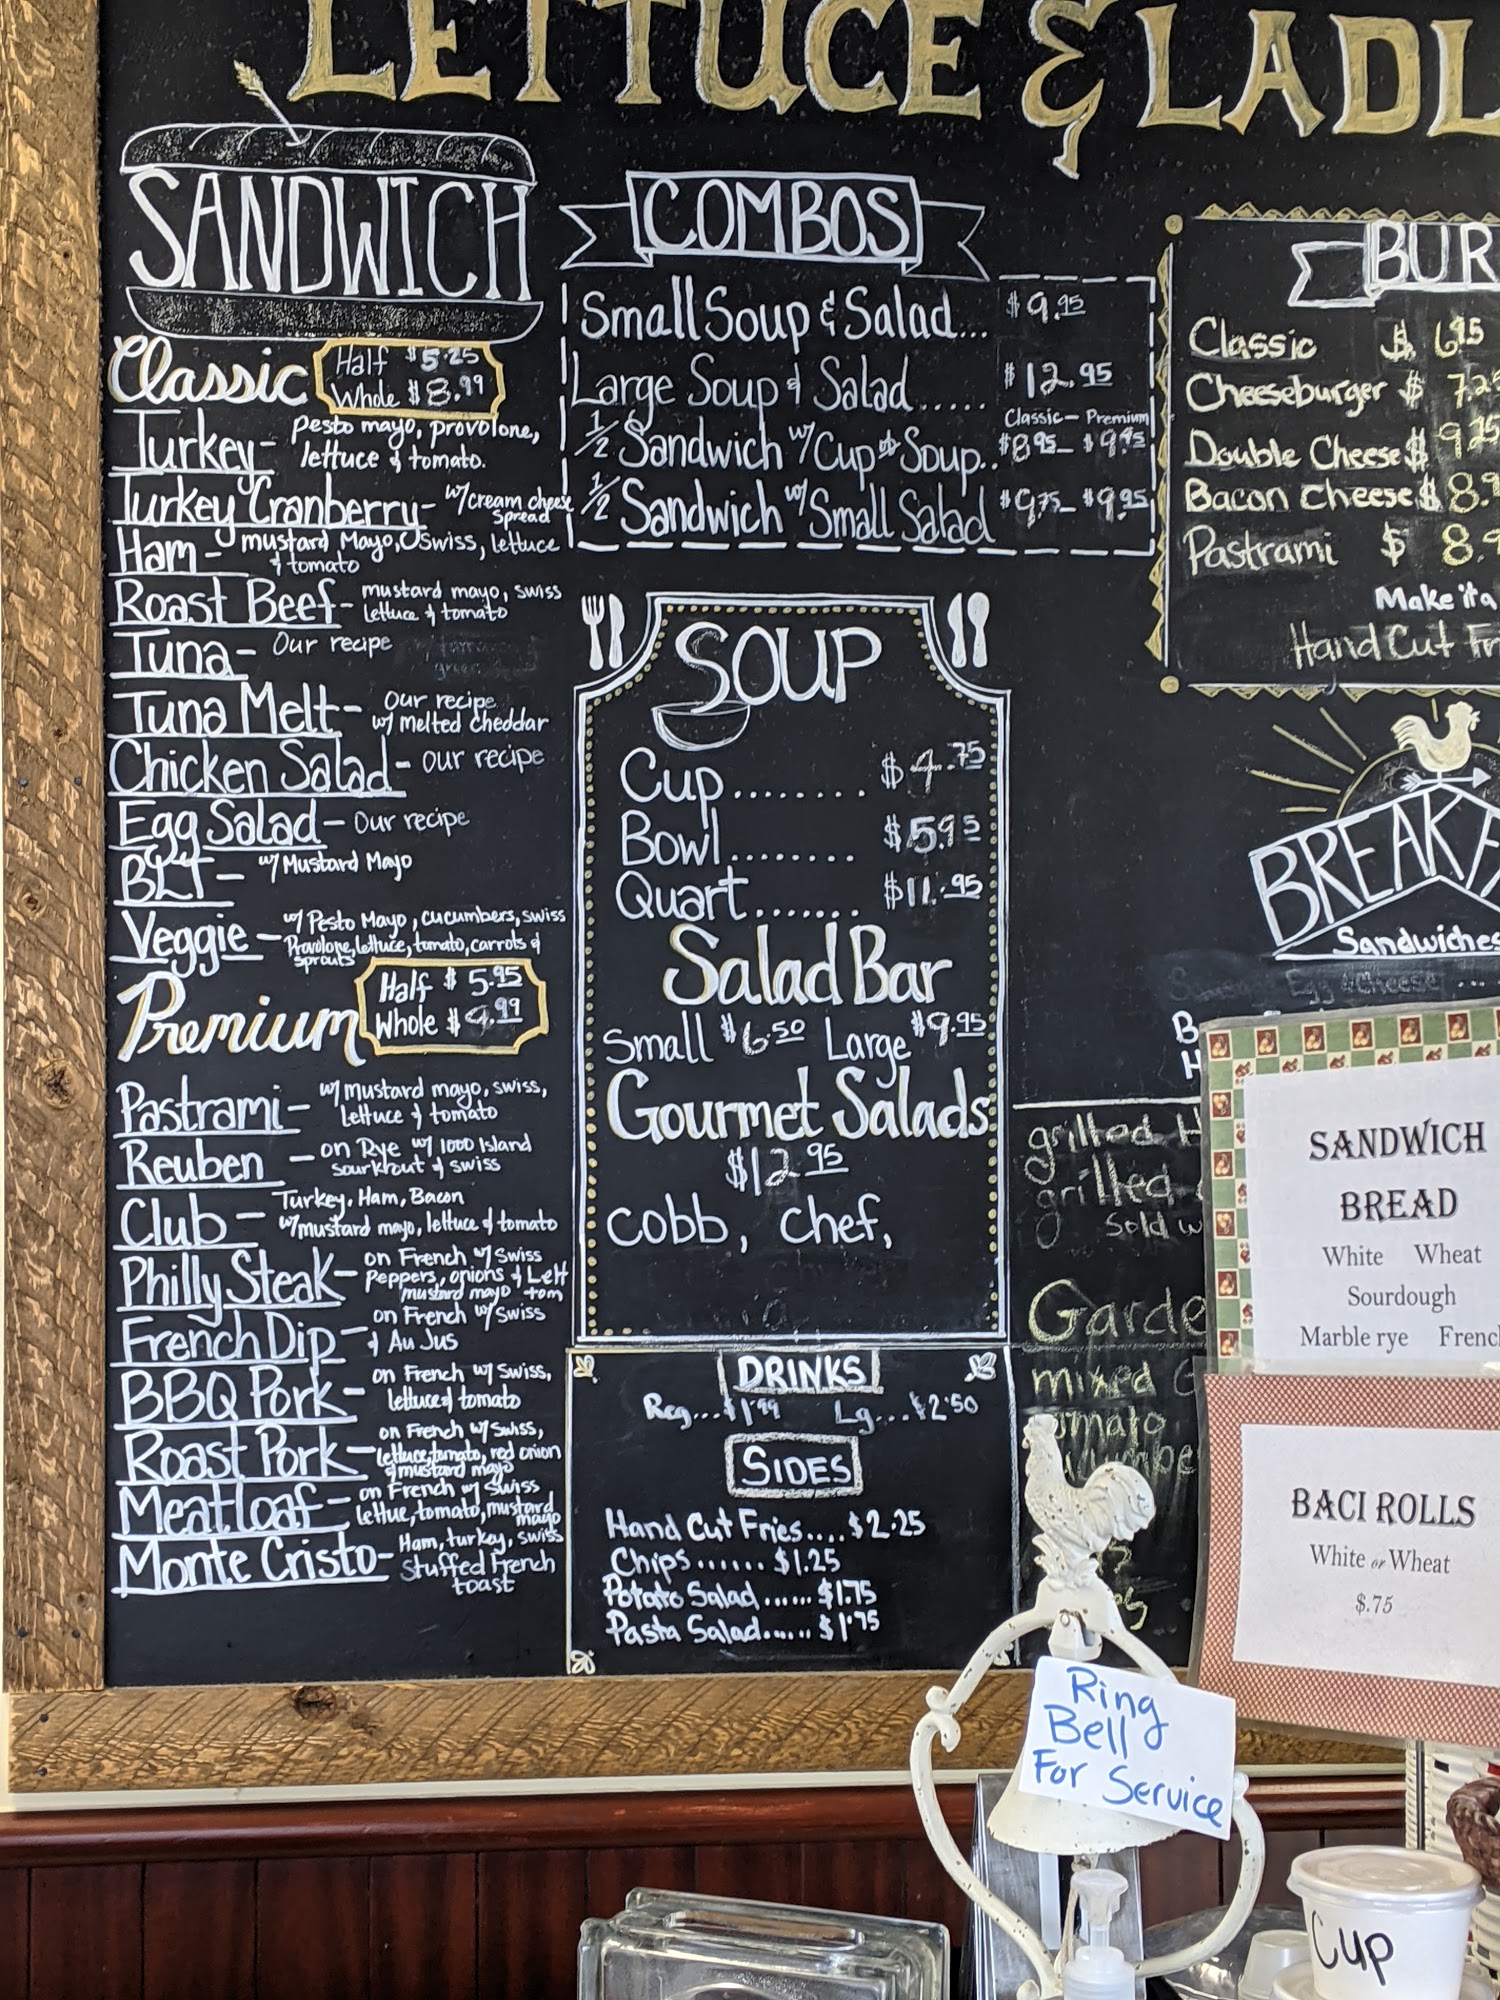 LETTUCE & LADL
SANDWICH
Classic Half $5.25
Whole $8.99
Turkey- pesto mayo, provolone,
lettuce & tomato.
Turkey Cranberry- w/ cream cheese
spread
Ham- mustard Mayo, Swiss, lettuce
& tomato
Roast Beef- mustard mayo, swiss
lettuce & tomato
Tuna- Our recipe
Tuna Melt- Our recipe
w/ melted cheddar
Chicken Salad- our recipe
Egg Salad- Our recipe
BLT- w/ Mustard Mayo
Veggie- w/ Pesto Mayo, cucumbers, swiss
Provolone, lettuce, tomato, carrots &
sprouts
Premium Half $5.95
Whole $9.99
Pastrami- w/ mustard mayo, swiss,
lettuce & tomato
Reuben - on Rye w/ 1000 Island
sourkraut & swiss
Club- Turkey, Ham, Bacon
w/ mustard mayo, lettuce & tomato
Philly Steak- on French w/ Swiss
peppers, onions & Lett
mustard mayo tom
French Dip- on French w/ Swiss
& Au Jus
BBQ Pork- on French w/ Swiss,
lettuce & tomato
Roast Pork- on French w/ Swiss,
lettuce, tomato, red onion
& mustard mayo
Meatloaf- on French w/ Swiss
lettue, tomato, mustard
mayo
Monte Cristo- Ham, turkey, swiss
stuffed French
toast
COMBOS
Small Soup & Salad... $9.95
Large Soup & Salad..... $12.95
Classic - Premium
1/2 Sandwich w/ Cup of Soup.. $8.95- $9.45
1/2 Sandwich w/ Small Salad $9.75- $9.95
SOUP
Cup......... $4.75
Bowl........ $5.95
Quart....... $11.95
Salad Bar
Small $6.50 Large $9.95
Gourmet Salads
$12.95
Cobb, Chef,
DRINKS
Reg...$1.99 Lg...$2.50
SIDES
Hand Cut Fries.... $2.25
Chips...... $1.25
Potato Salad...... $1.75
Pasta Salad..... $1.75
BUR
Classic $6.95
Cheeseburger $7.25
Double Cheese $9.25
Bacon Cheese $8.9
Pastrami $8.9
Make it a
Hand Cut Fr
BREAKF
Sandwiches
Egg & Cheese ...
B
H
grilled H
grilled
Sold w
Garde
mixed G
omato
umbe
SANDWICH
BREAD
White Wheat
Sourdough
Marble rye French
BACI ROLLS
White or Wheat
$.75
Ring
Bell
For Service
Cup